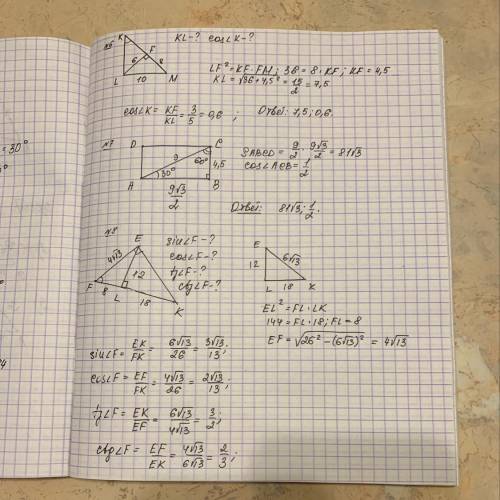 = 30°
№6
K
F
6
8
L
10
M
KL-? cos∠K-?
LF² = KF·FM; 36 = 8·KF; KF = 4,5
KL = √36+4,5² = 15/2 = 7,5
cos∠K = KF/KL = 3/5 = 0,6; Ответ: 7,5; 0,6.
№7
D
C
9
60°
4,5
30°
A
B
9√3/2
SABCD = 9/2 · 9√3/2 = 81√3
cos∠ACB = 1/2
Ответ: 81√3; 1/2.
№8
E
4√13
12
F
8
L
18
K
sin∠F-?
cos∠F-?
tg∠F-?
ctg∠F-?
E
12
6√13
L
18
K
EL² = FL·LK
144 = FL·18; FL = 8
EF = √26²-(6√13)² = 4√13
sin∠F = EK/FK = 6√13/26 = 3√13/13;
cos∠F = EF/FK = 4√13/26 = 2√13/13;
tg∠F = EK/EF = 6√13/4√13 = 3/2;
ctg∠F = EF/EK = 4√13/6√13 = 2/3;